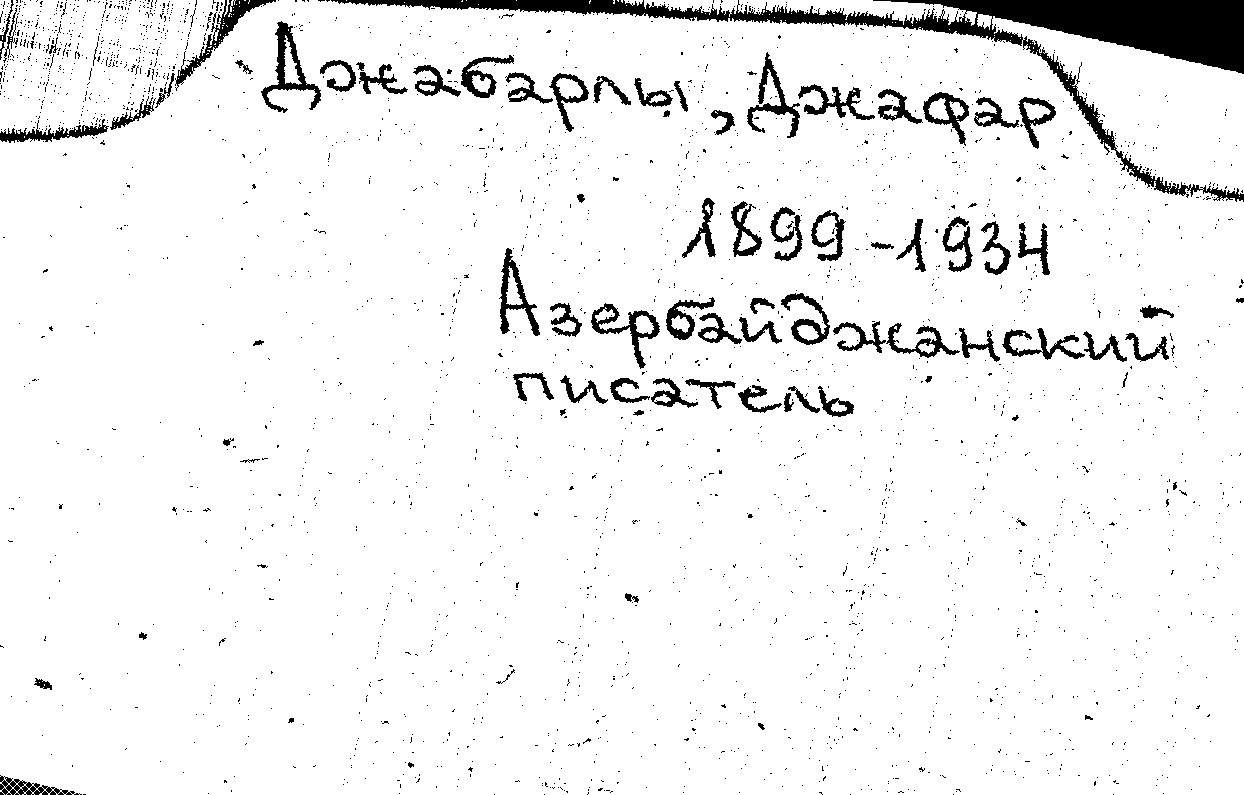 Джабарлы, Джафар
1899-1934
Азербайджанский
писатель